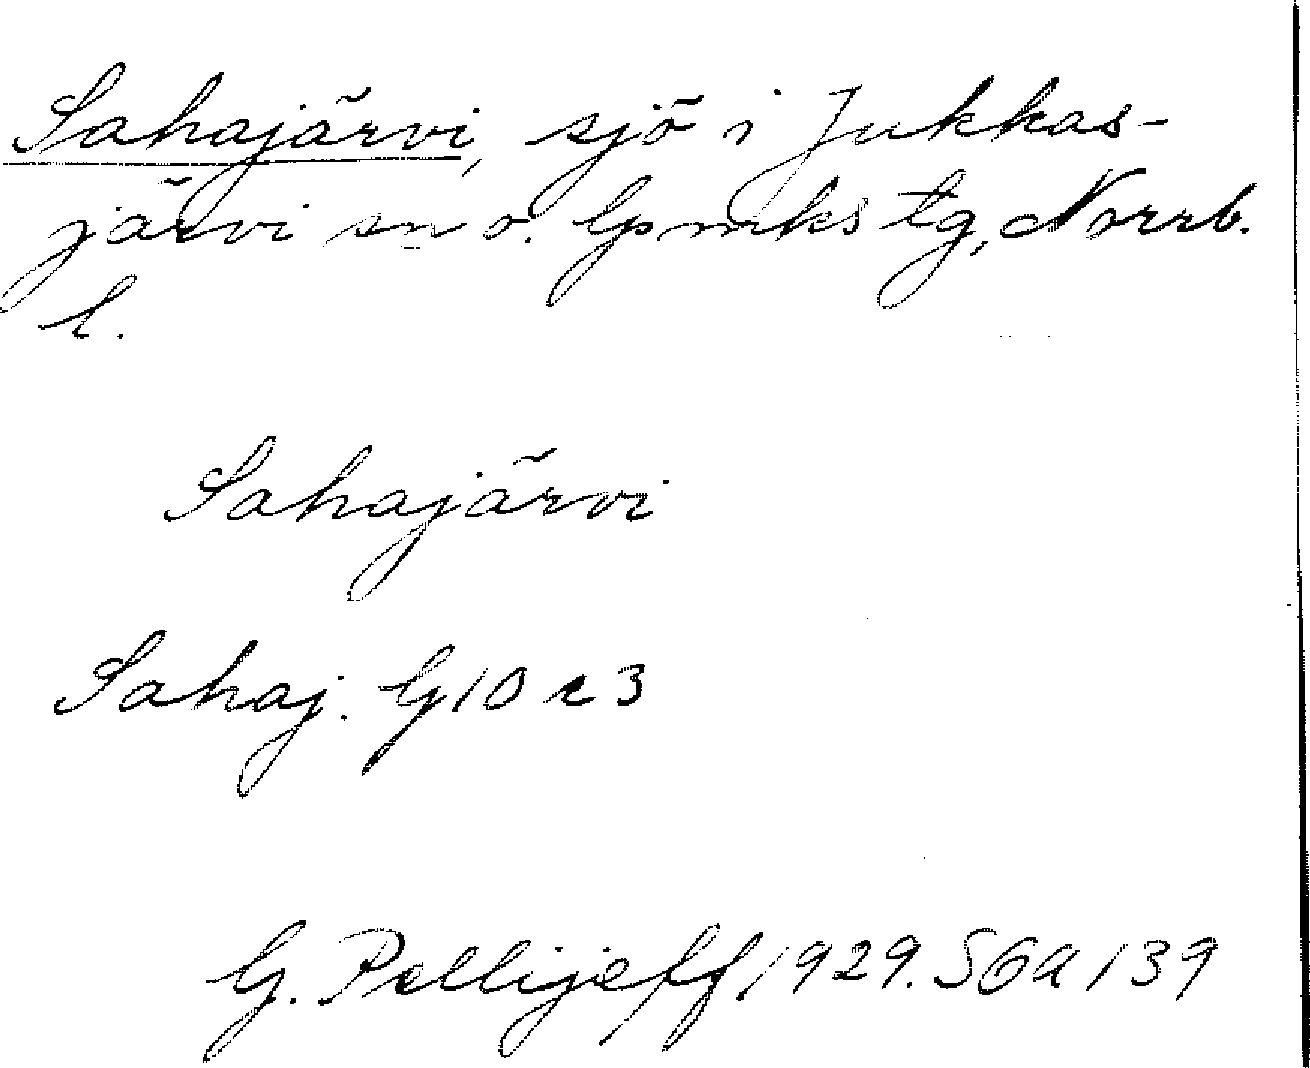 Sahajärvi, sjö i Jukkas-
järvi sn o. lpmks tg, Norrb.
l.
Sahajärvi
Sahaj. G 10 c 3
G. Pellijeff 1929. SGA 139